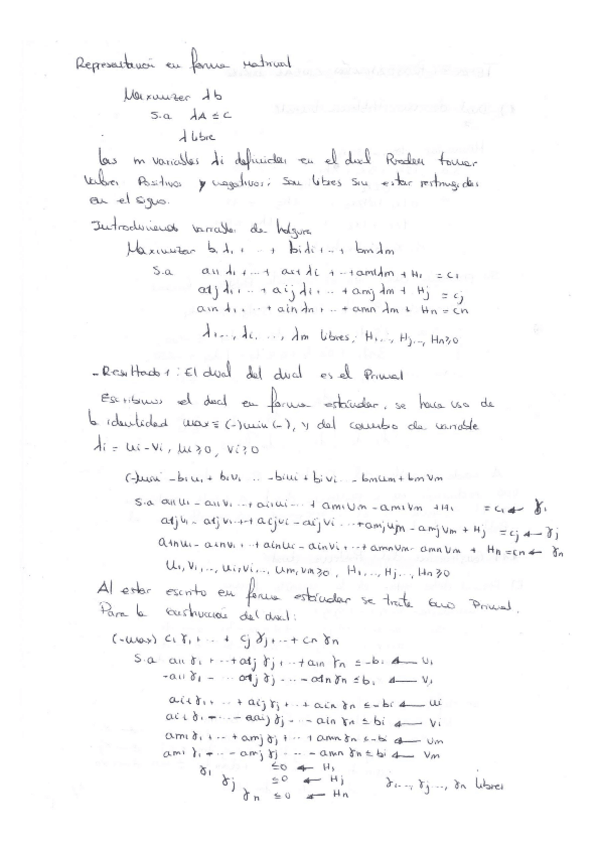 Representación en forma matricial
Maximizar λb
S.a λA ≤ C
λ libre
Las m variables λi definidas en el dual Pueden tomar
valores Positivos y negativos; son libres sin estar restringidas
en el signo.
Introduciendo variables de holgura
Maximizar b1λ1+ ··+ biλi+··+ bmλm
S.a a11λ1+···+ ai1λi + ··+am1λm + H1 = C1
a1jλ1+··+ aijλi+··+ amjλm + Hj = Cj
a1nλ1+··+ainλi+··+ amnλm + Hn = Cn
λ1..., λi, ..., λm libres; H1,..., Hj.., Hn≥0
- Resultado 1: El dual del dual es el Primal
Escribimos el dual en forma estándar, se hace uso de
la identidad max ≡ (-)min(-), y del cambio de variable
λi = ui - vi, ui≥0, vi≥0
(-)min -b1u1+ b1v1 ·· -biui + bivi ·· -bmum + bmvm
S.a a11u1 - a11v1 ··+ ai1ui ··+ am1um - am1vm + H1 = C1 ← γ1
a1ju1 - a1jv1 ··+ aijui - aijvi ··+amjum - amjvm + Hj = Cj ← γj
a1nu1 - a1nv1 ··+ainui - ainvi ··+ amnum - amnvm + Hn = Cn ← γn
u1, v1, .., ui, vi..., um, vm≥0, H1,.., Hj.., Hn≥0
Al estar escrito en forma estándar se trata como Primal.
Para la construcción del dual:
(-max) C1γ1+··+ Cjγj+··+ Cnγn
S.a a11γ1+··+a1jγj+··+a1nγn ≤ -b1 ← U1
-a11γ1 - ··· a1jγj - ·· -a1nγn ≤ b1 ← V1
ai1γ1+··+ aijγj+··+ ainγn ≤ -bi ← ui
ai1γ1 - ·· -aijγj - ·· - ainγn ≤ bi ← Vi
am1γ1+··+ amjγj+··+ amnγn ≤ -bi ← Um
am1γ1 - ·· - amjγj - ·· - amnγn ≤ bi ← Vm
γ1 ≤0 ← H1
γj ≤0 ← Hj
γn ≤0 ← Hn γ1..., γj..., γn libres